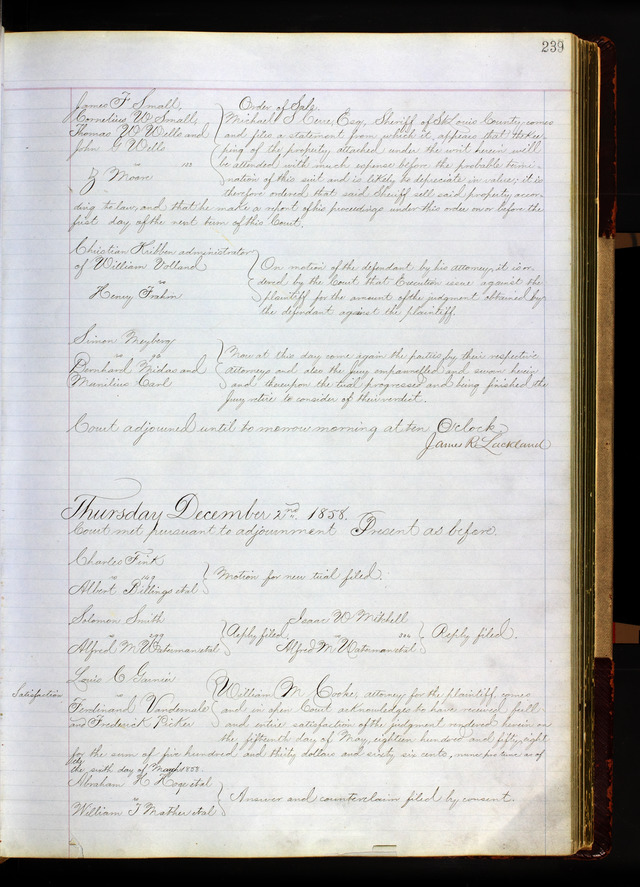 239
James F. Small, Order of Sale.
Cornelius W Small, Michael S. Cerre, Esq, Sheriff of St Louis County, comes
Thomas W Wells and and files a statement from which it appears that the kee-
John G Wells ping of the property attached under the writ herein will
vs 103 be attended with much expense before the probable termi-
Z Moore nation of this suit and is likely to depreciate in value; it is
therefore ordered that said Sheriff sell said property accor-
ding to law, and that he make a report of his proceedings under this order on or before the
first day of the next term of this Court.
Christian Kribben administrator
of William Volland On motion of the defendant by his attorney, it is or-
vs dered by the Court that Execution issue against the
Henry Frahm plaintiff for the amount of the judgment obtained by
the defendant against the plaintiff.
Simon Meyberg Now at this day come again the parties by their respective
vs 96 attorneys and also the Jury empannelled and sworn herein
Bernhard Nidas and and thereupon the trial progressed and being finished the
Manilius Carl Jury retire to consider of their verdict.
Court adjourned until to morrow morning at ten O'clock
James R Lackland
Thursday December 2nd. 1858.
Court met pursuant to adjournment Present as before.
Charles Fink
vs 149 Motion for new trial filed.
Albert Billings et al
Solomon Smith Isaac W Mitchell
vs Reply filed. vs 304 Reply filed.
Alfred M Waterman et al Alfred M Waterman et al
Louis C Garnier William M Cooke, attorney for the plaintiff comes
Satisfaction vs and in open Court acknowledges to have received full
Ferdinand Vandersale and entire satisfaction of the judgment rendered herein on
and Frederick Ricker the fifteenth day of May, eighteen hundred and fifty eight
for the sum of five hundred and thirty dollars and sixty six cents, nunc pro tunc as of
the sixth day of 1858.
Abraham H Hoge et al
vs Answer and counterclaim filed by consent.
William T Mather et al